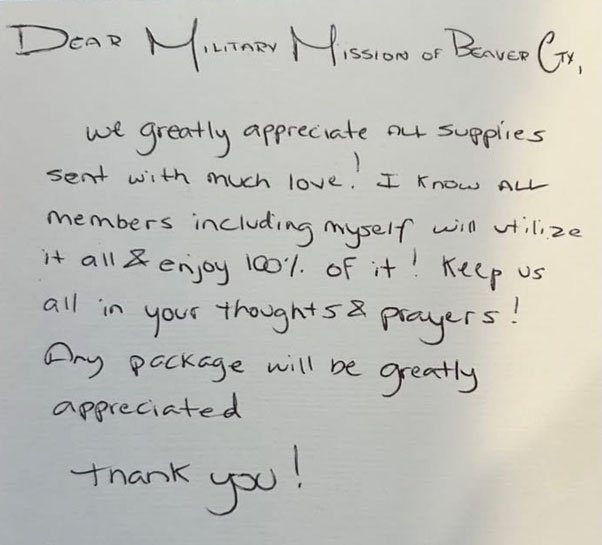 Dear Military Mission of Beaver Cty,
we greatly appreciate all supplies
sent with much love! I know all
members including myself will utilize
it all & enjoy 100% of it! Keep us
all in your thoughts & prayers!
Any package will be greatly
appreciated
thank you!